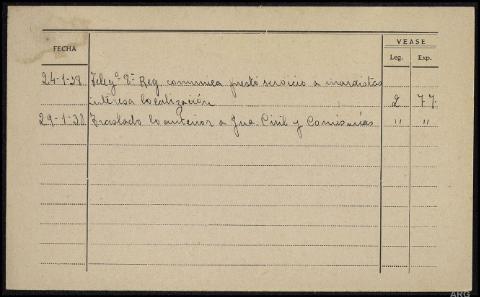 VEASE
FECHA Leg. Exp.
24-1-38 Telegª 8ª Reg. comunica prestó servicio a marxistas
interesa localización 2 77
29-1-38 Traslado lo anterior a Gua. Civil y Comisarías " "
ARG